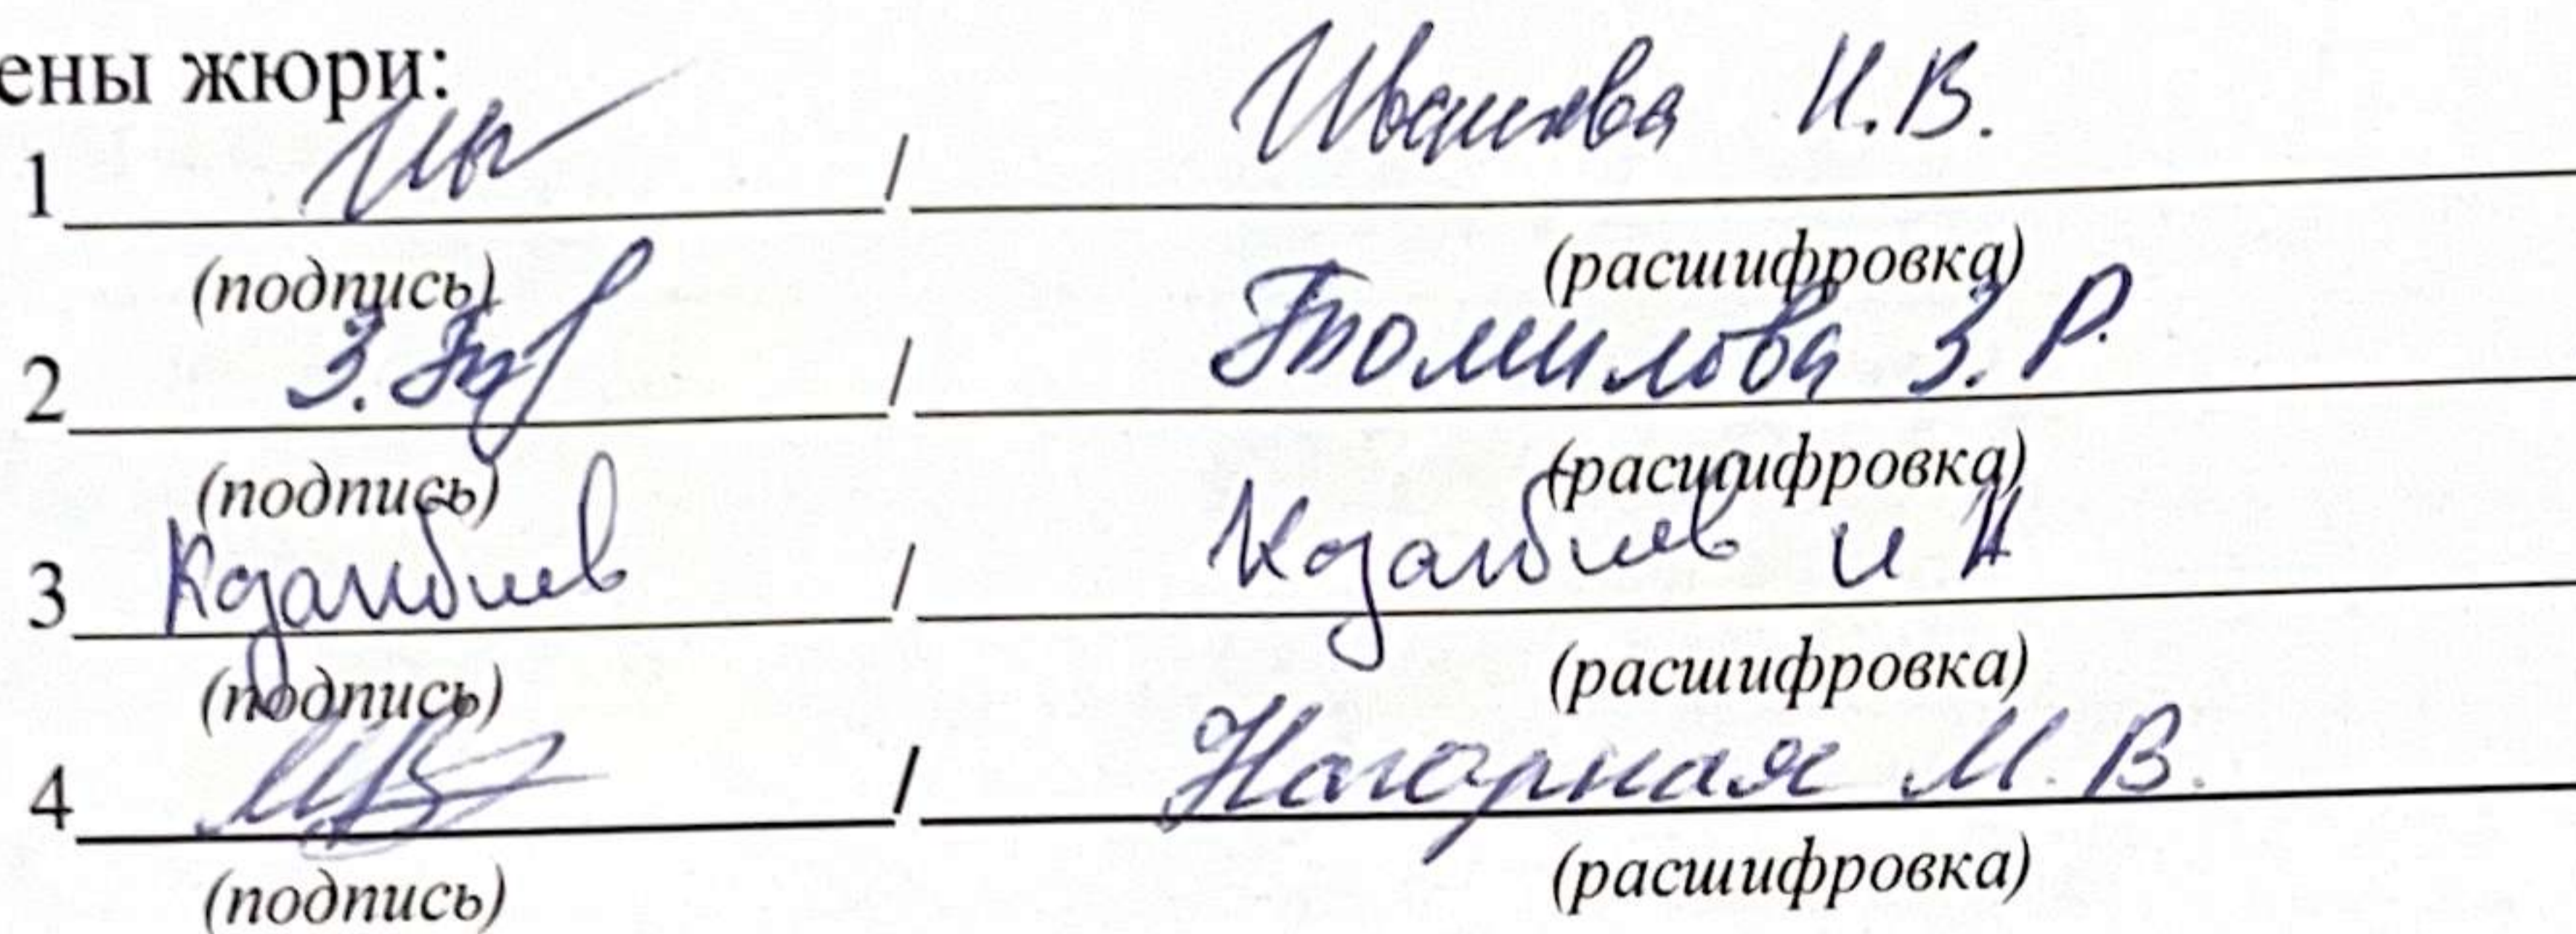 ены жюри:
1 / Иванова И.В.
(подпись) (расшифровка)
2 З. / Томилова З.Р.
(подпись) (расшифровка)
3 Кдамбиев / Кдамбиев И Н
(подпись) (расшифровка)
4 / Нагорная М.В.
(подпись) (расшифровка)